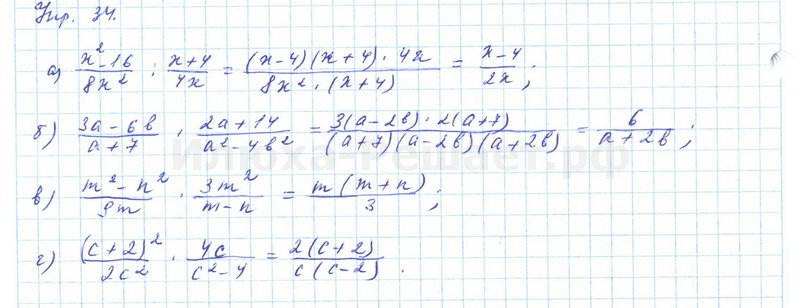 Упр. 34.
а) (x² - 16)/(8x²) : (x+4)/(4x) = ((x-4)(x+4) · 4x)/(8x² · (x+4)) = (x-4)/(2x) ;
б) (3a - 6b)/(a+7) · (2a+14)/(a² - 4b²) = (3(a-2b) · 2(a+7))/((a+7)(a-2b)(a+2b)) = 6/(a+2b) ;
в) (m² - n²)/(9m) · (3m²)/(m-n) = (m(m+n))/3 ;
г) ((c+2)²)/(2c²) · (4c)/(c² - 4) = (2(c+2))/(c(c-2)) .